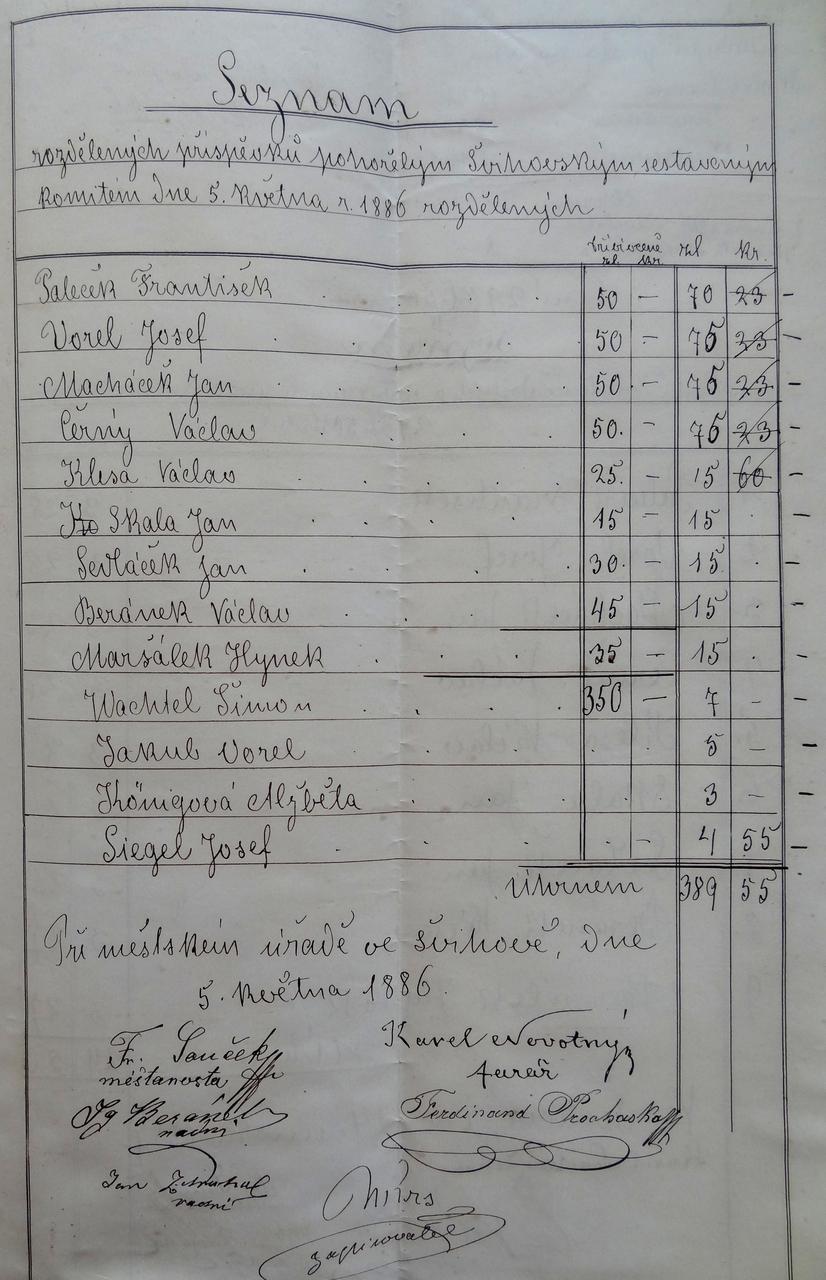 Seznam
rozdělených příspěvků pohořelým Švihovským sestaveným
komitém dne 5. května r. 1886 rozdělených
zl. kr. zl kr.
Paleček František 50 — 70 23 -
Vorel Josef 50 — 75 23 -
Macháček Jan 50 — 75 23 -
Černý Václav 50. — 75 23 -
Klesa Václav 25. — 15 60 -
Skala Jan 15 — 15 . -
Sedláček Jan 30. — 15 . -
Beránek Václav 45 — 15 . -
Maršálek Hynek 35 — 15 . -
Wachtel Šimon 350 — 7 — -
Jakub Vorel 5 — -
Königová Alžběta 3 — -
Siegel Josef - 4 55 -
Úhrnem 389 55
Při městském úřadě ve Švihově, dne
5. května 1886.
Fr. Souček Karel Novotný
měšťanosta farář
Ig Beránek Ferdinand Prochaska
radní
Jan
radní
zapisovatel